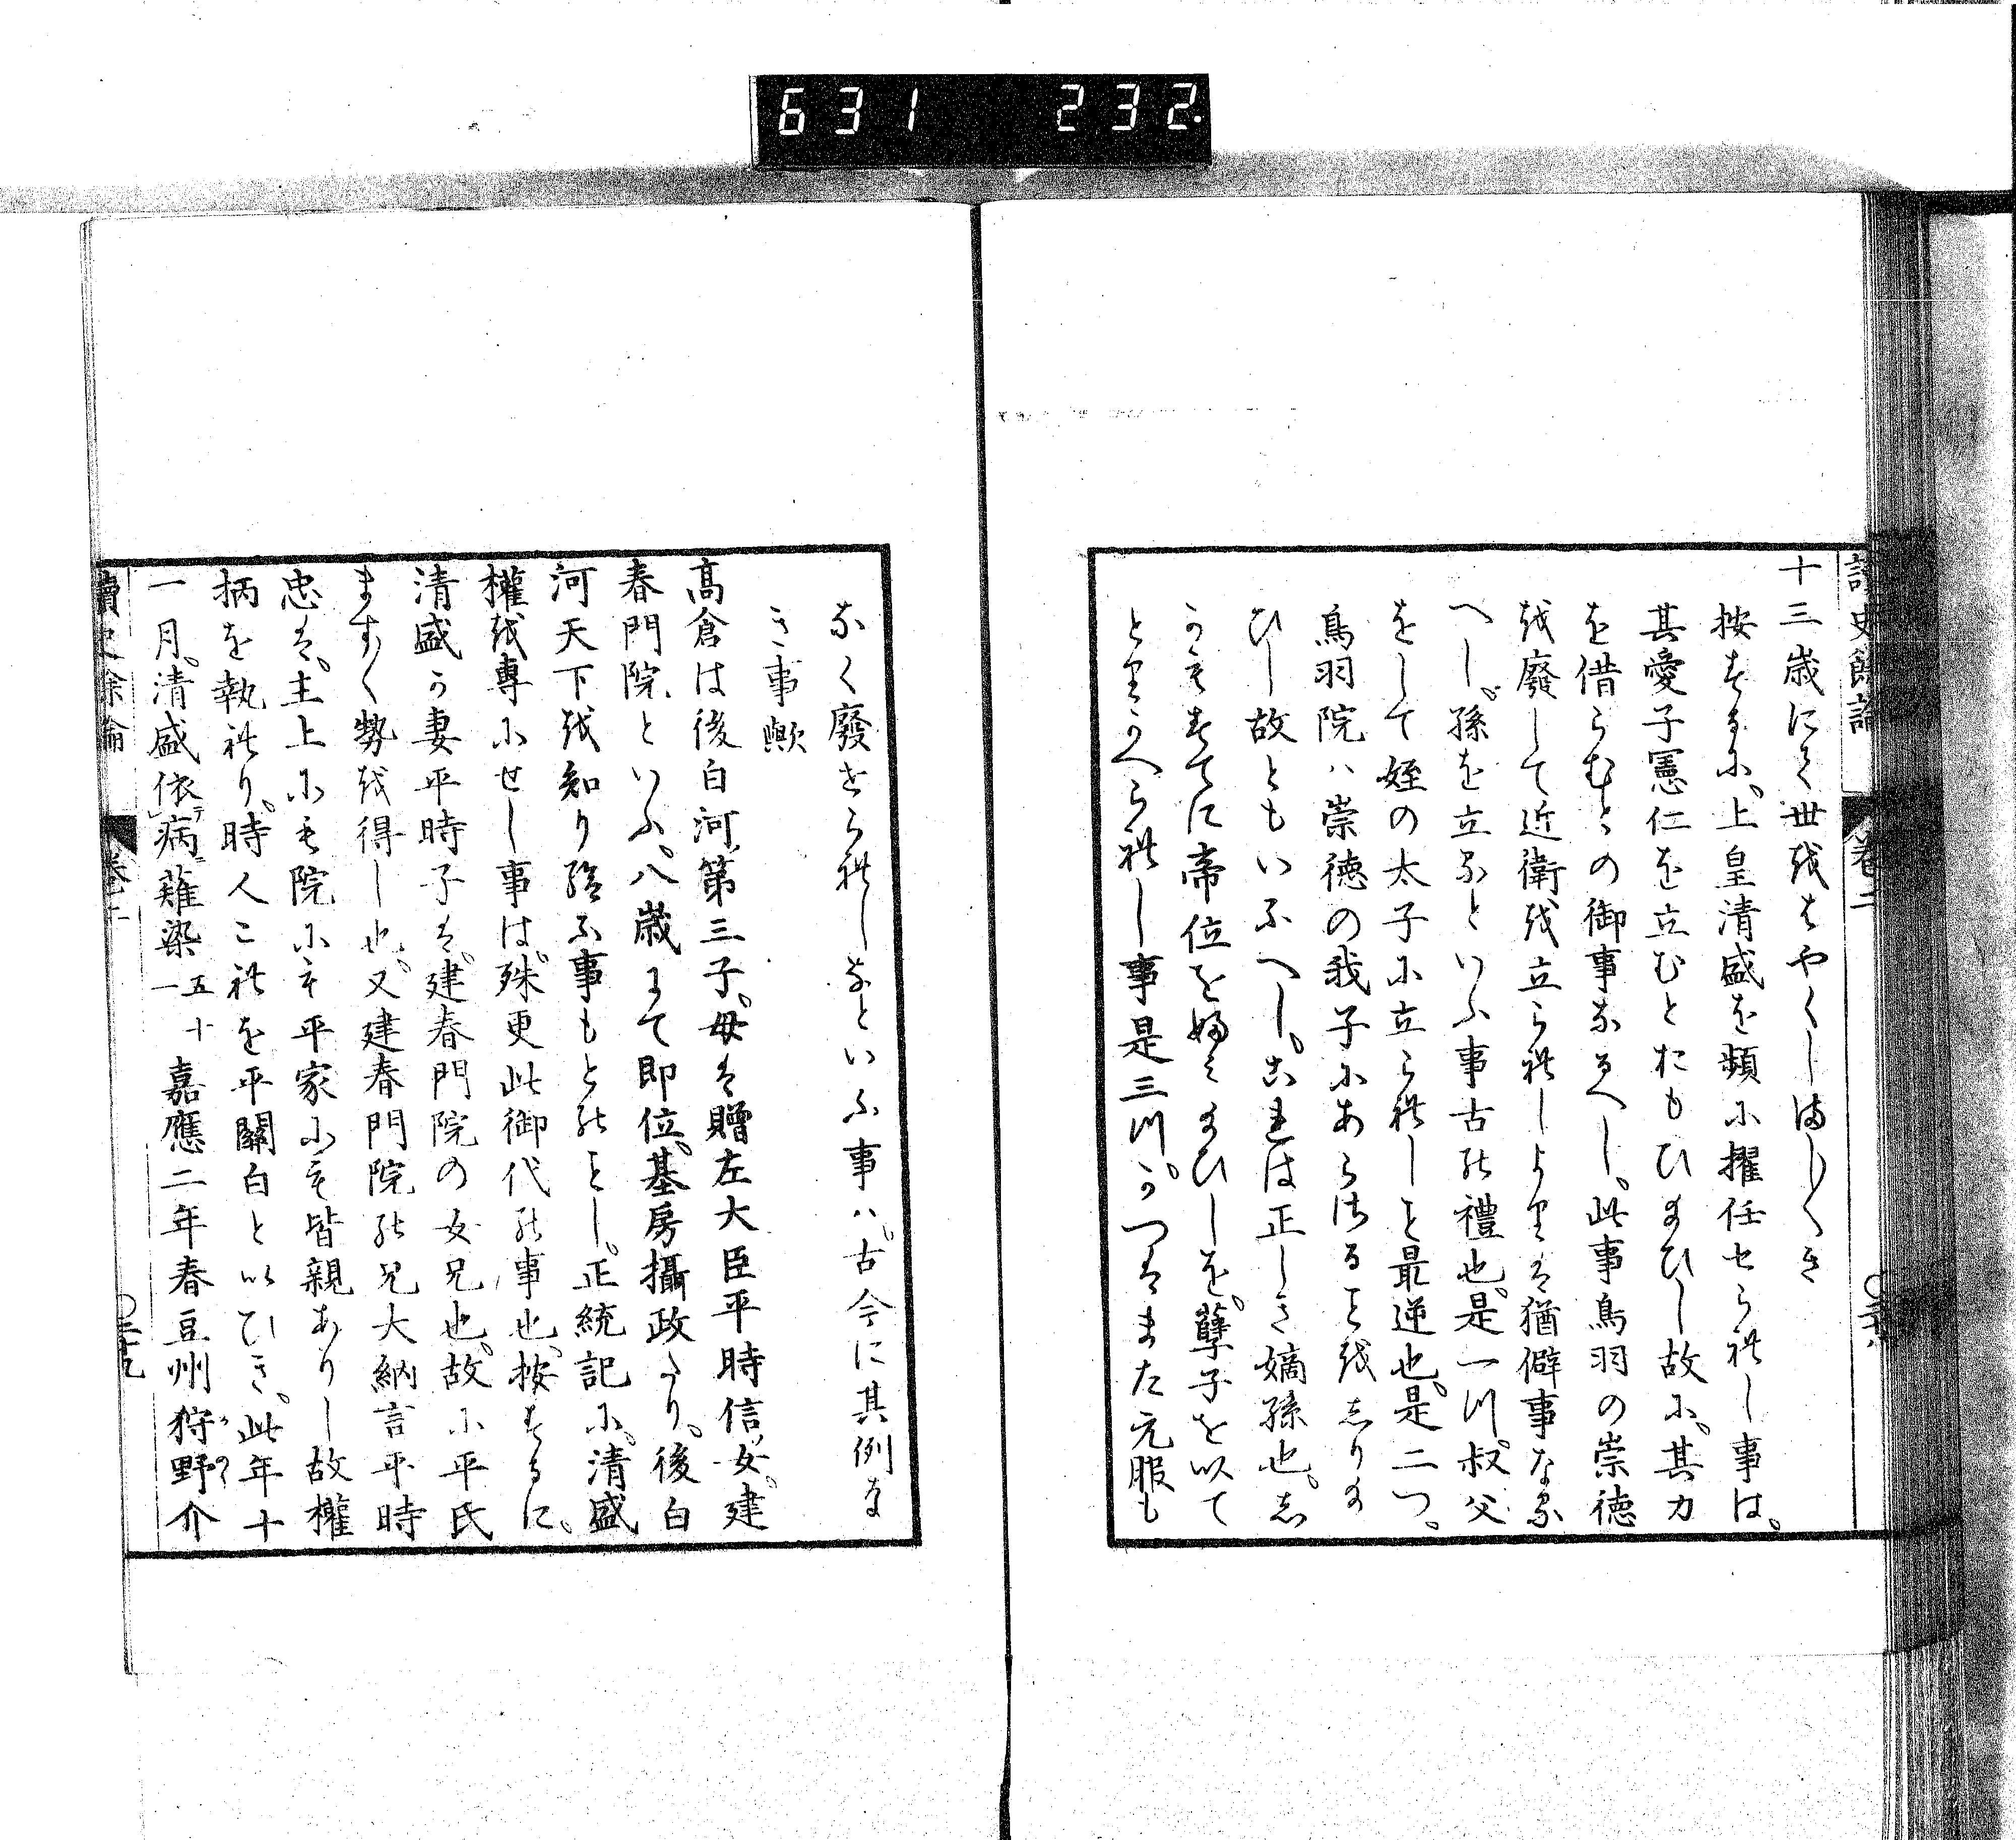 631 232.
讀史餘論 卷二
十三歳にて世をはやくしましましき
按するに。上皇清盛を頻に擢任せられし事は。
其愛子憲仁を立むとおもひ給ひし故に。其力
を借らむとの御事なるへし。此事鳥羽の崇德
を廢して近衛を立られしよりは猶僻事なる
へし。孫を立るといふ事古の禮也。是一つ。叔父
をして姪の太子に立られしを最逆也。是二つ。
鳥羽院ハ崇德の我子にあらさるをしり給
ひし故ともいふへし。これは正しき嫡孫也。し
かもすてに帝位を嗣き給ひしを。孽子を以て
とりかへられし事是三つ。かつはまた元服も
なく廢せられしなといふ事ハ。古今に其例な
き事歟
高倉は後白河第三子。母は贈左大臣平時信ノ女。建
春門院といふ。八歳にて即位。基房攝政たり。後白
河天下を知り給ふ事もとのことし。正統記に。清盛
權を專にせし事は。殊更此御代の事也。按するに。
清盛か妻平時子は。建春門院の女兄也。故に平氏
ますく勢を得し也。又建春門院の兄大納言平時
忠は。主上にも院にも平家にも皆親ありし故權
柄を執れり。時人これを平關白といひき。此年十
一月。清盛依テ病ニ薙染五十一 嘉應二年春豆州狩野介
讀史餘論 卷二 〇三十九